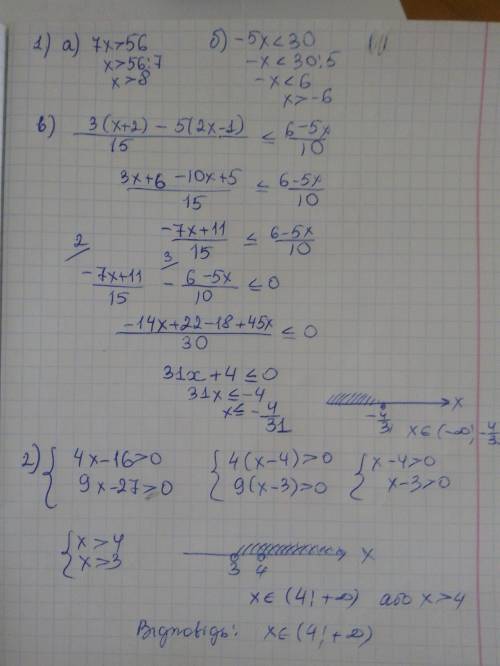 1) а) 7x>56 б) -5x<30
x>56:7 -x<30:5
x>8 -x<6
x>-6
в) (3(x+2) - 5(2x-1))/15 ≤ (6-5x)/10
(3x+6-10x+5)/15 ≤ (6-5x)/10
(-7x+11)/15 ≤ (6-5x)/10
2/ 3/
(-7x+11)/15 - (6-5x)/10 ≤ 0
(-14x+22-18+45x)/30 ≤ 0
31x+4 ≤ 0
31x ≤ -4
x ≤ -4/31
-4/31 x
x∈(-∞; -4/3
2) { 4x-16>0 { 4(x-4)>0 { x-4>0
9x-27>0 9(x-3)>0 x-3>0
{ x>4
x>3
3 4 x
x∈(4;+∞) або x>4
Відповідь: x∈(4;+∞)